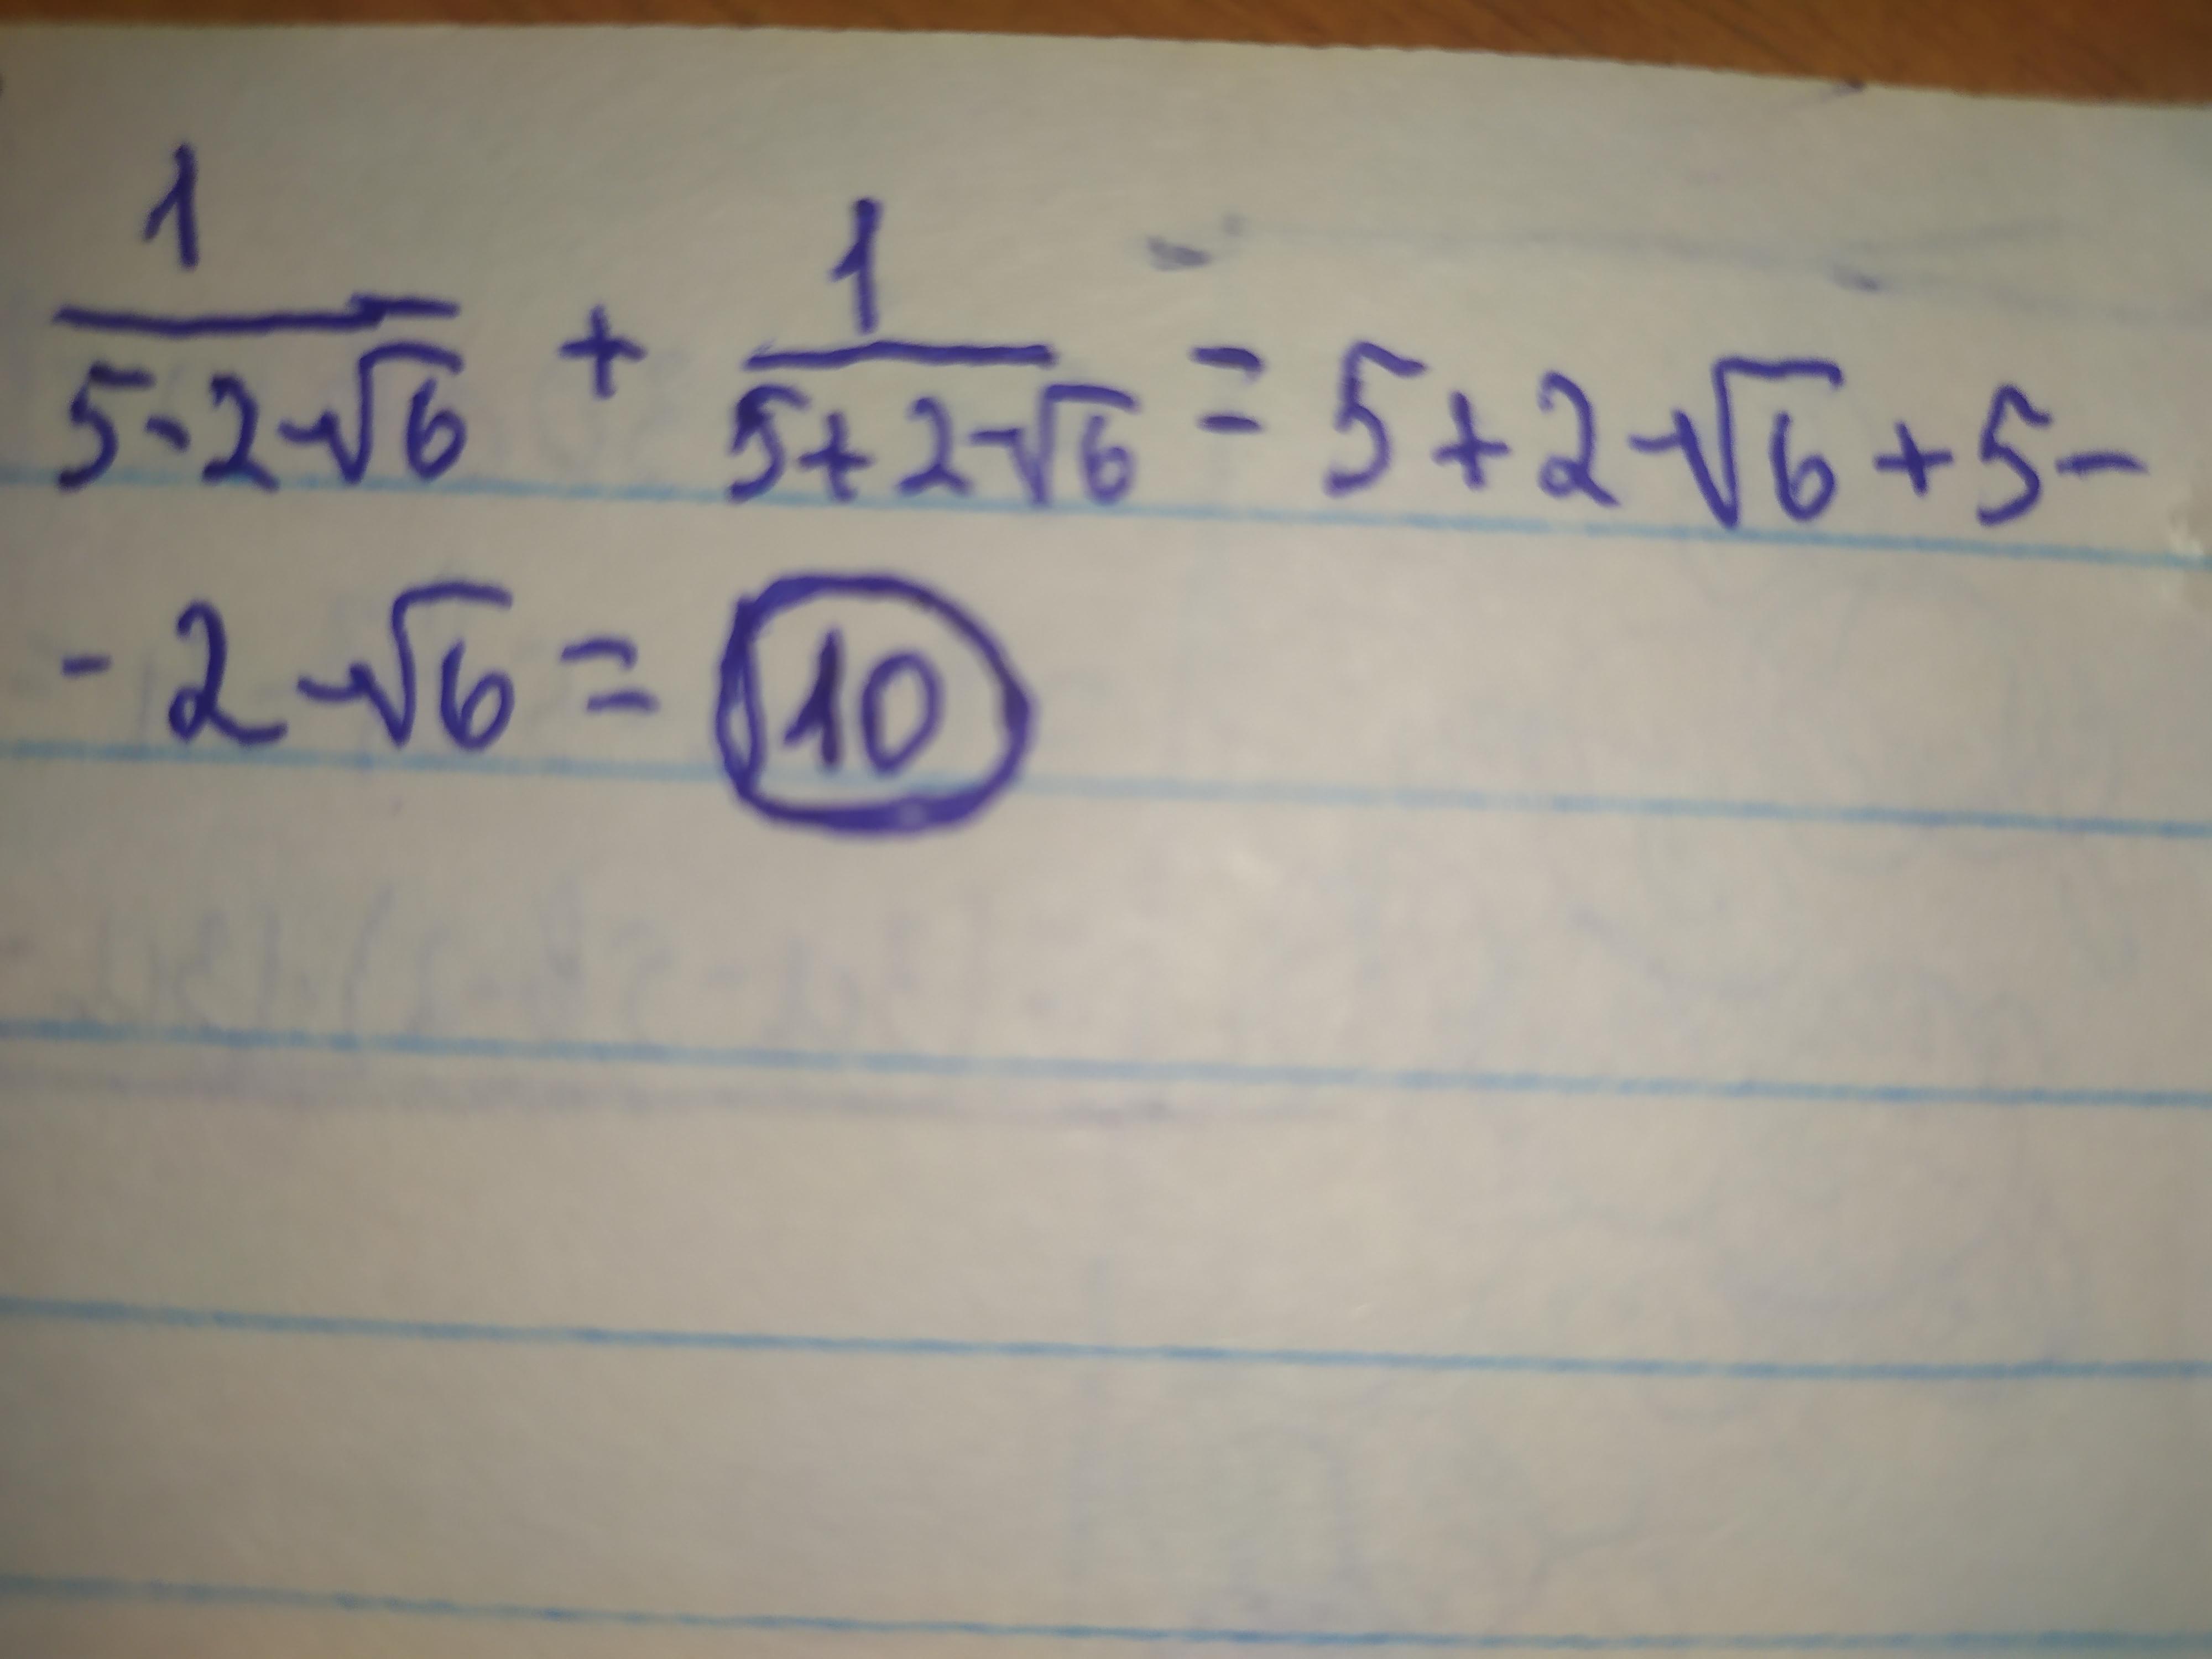 1/(5-2√6) + 1/(5+2√6) = 5+2√6+5-
-2√6 = 10